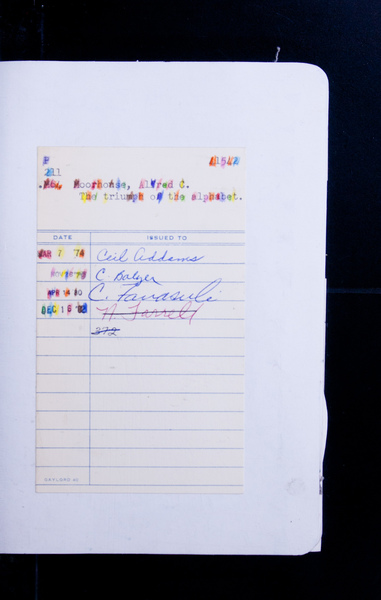 P
211
.M6 Moorhouse, Alfred C.
The triumph of the alphabet.
DATE ISSUED TO
MAR 7 74 Ceil Addams
C. Balzer
APR 14 80
DEC 15 H. Farrell
372
GAYLORD 40